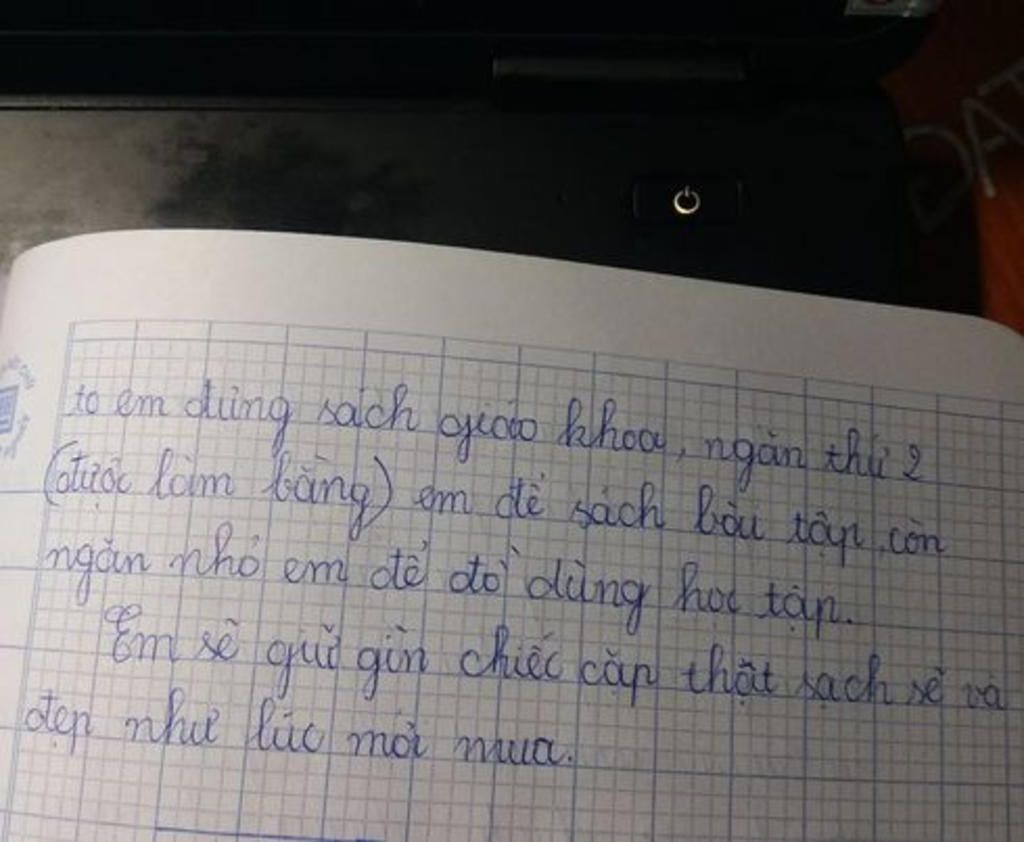 DAT
to em dùng sách giáo khoa, ngăn thứ 2
(được làm bằng) em để sách bài tập, còn
ngăn nhỏ em để đồ dùng học tập.
Em sẽ giữ gìn chiếc cặp thật sạch sẽ và
đẹp như lúc mới mua.